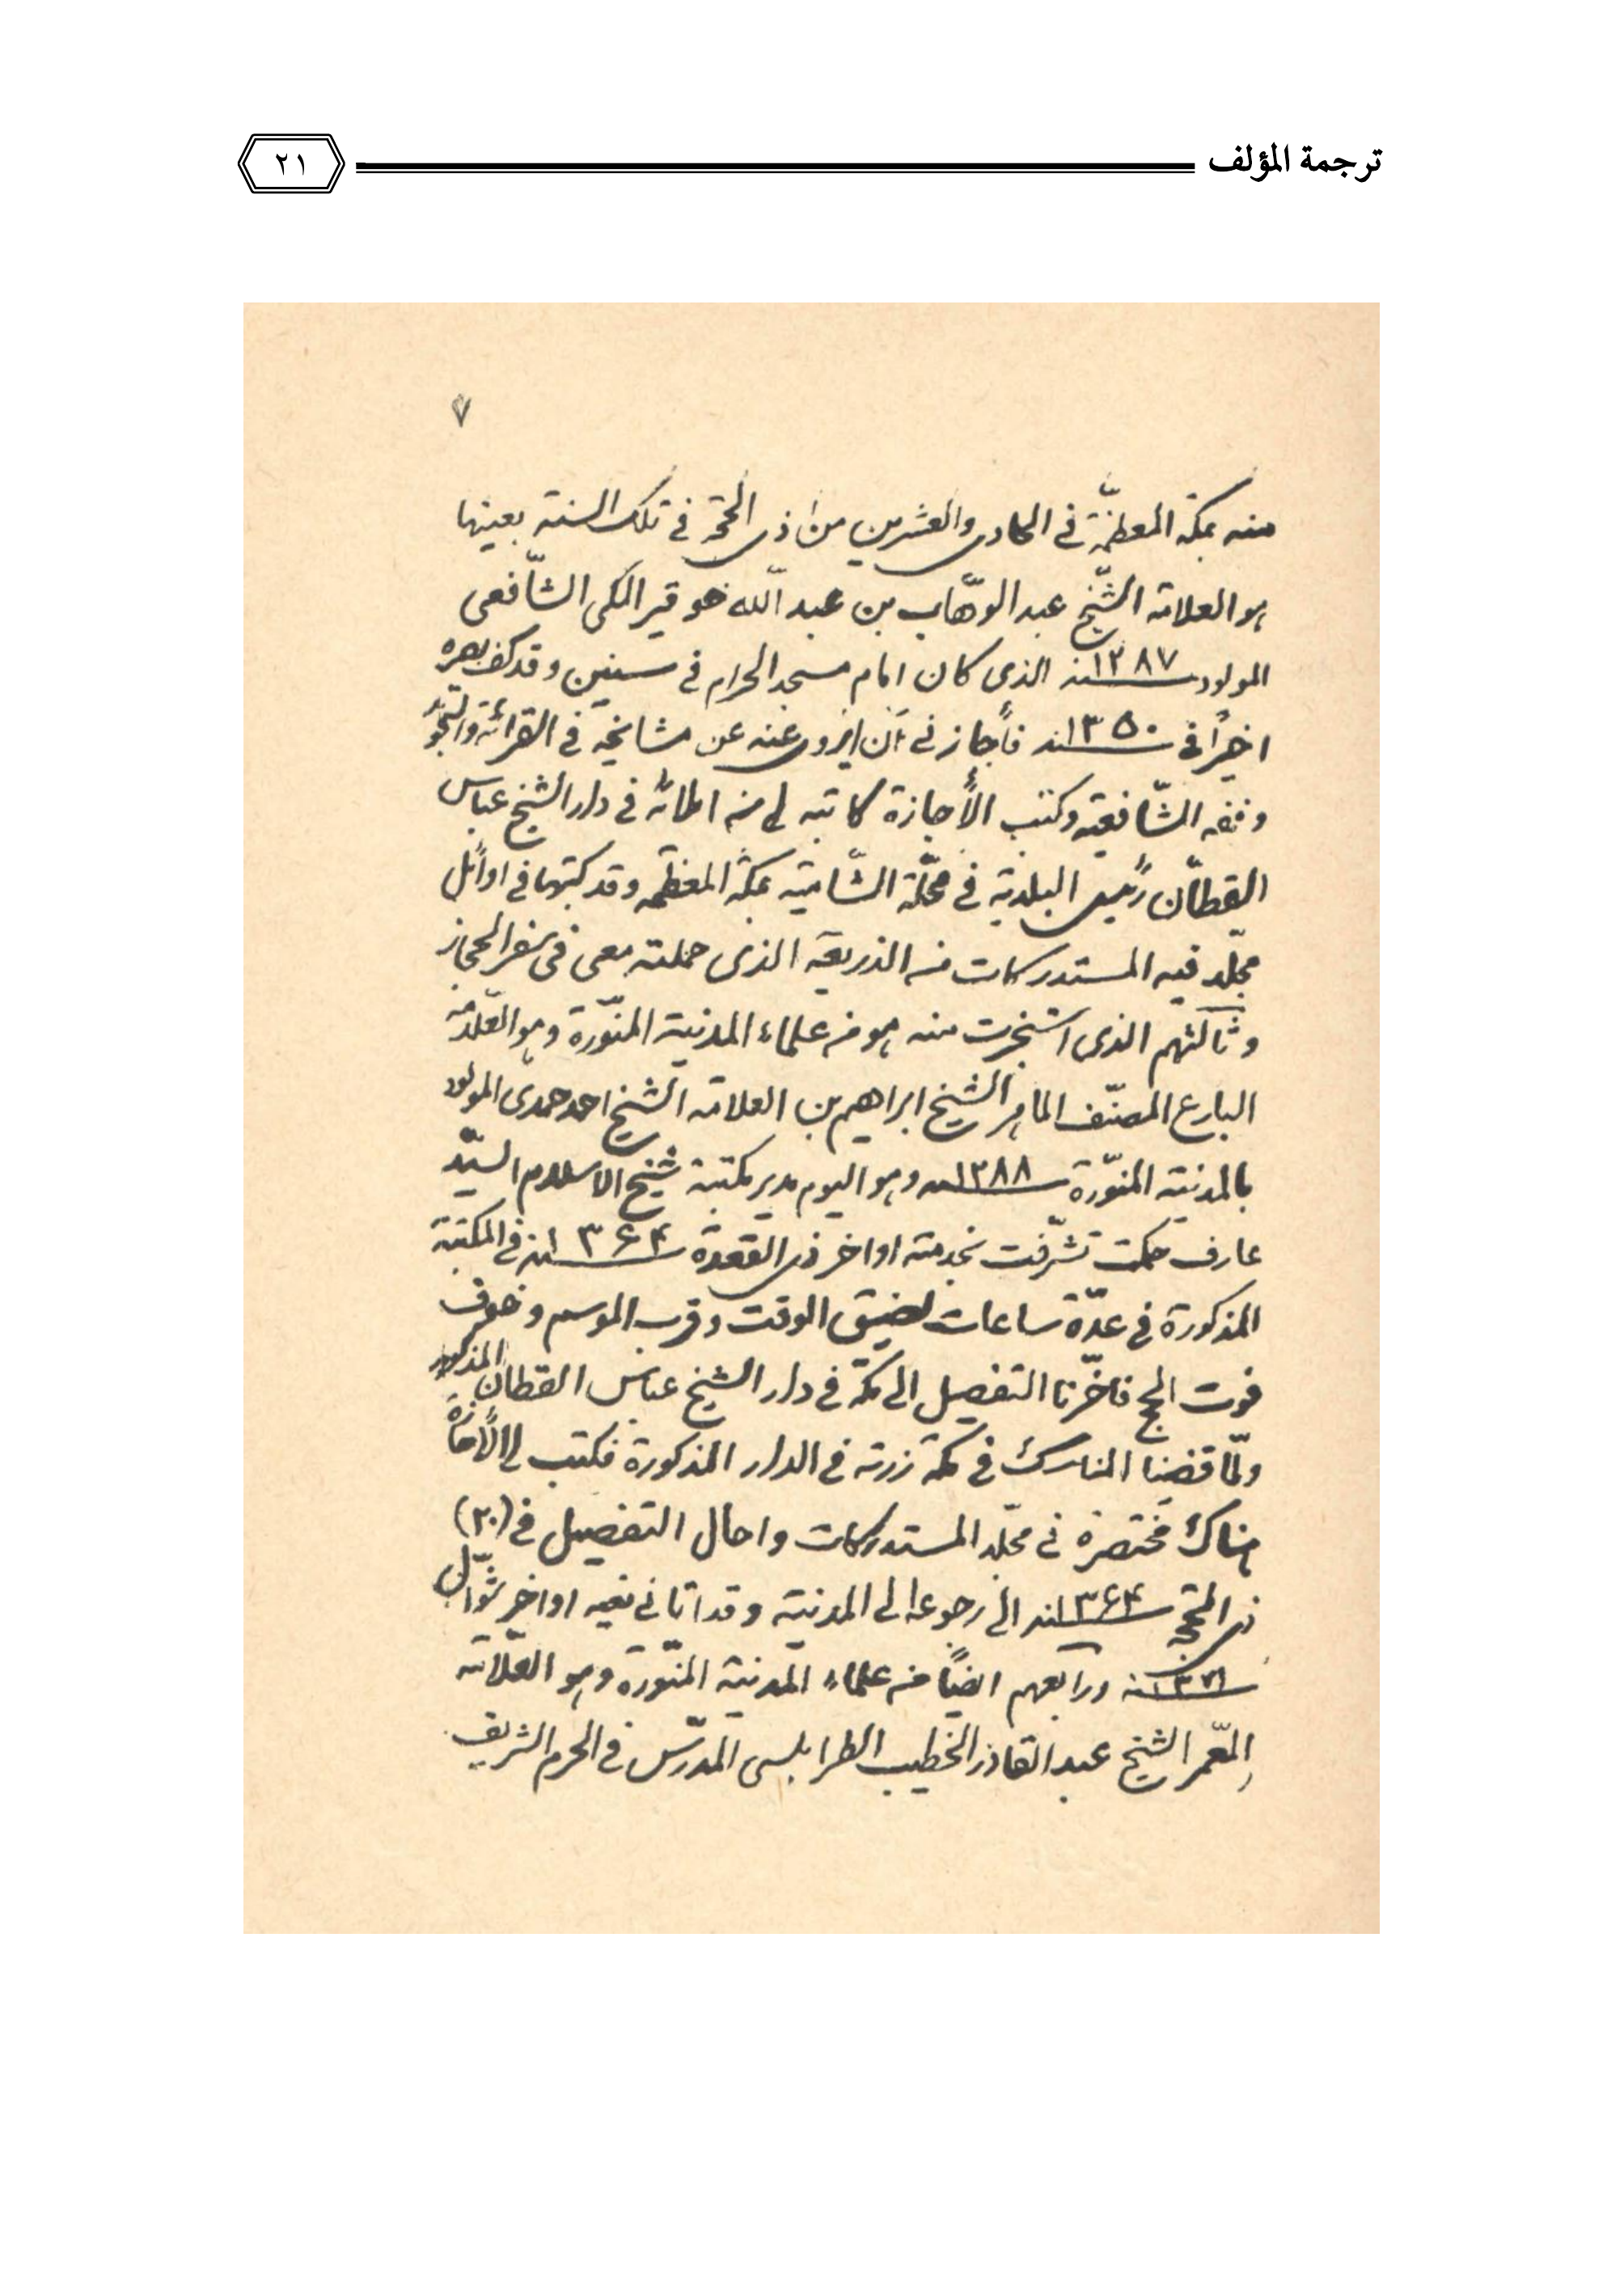 ترجمة المؤلف
٢١
٧
منه بمكة المعظّمة في الحادي والعشرين من ذي الحجة في تلك السنة بعينها
هو العلامة الشّيخ عبد الوهّاب بن عبد اللّه خوقير المكي الشّافعي
المولود سنة ١٢٨٧ الذي كان امام مسجد الحرام في سنين وقد كف بصره
اخيراً في سنة ١٣٥٠ فأجاز ني أن اروى عنه عن مشايخه في القرائة والتجويد
وفقه الشّافعية وكتب الأجازة كاتبه لي من املائه في دار الشيخ عباس
القطّان رئيس البلدية في محلّة الشّامية بمكة المعظمة وقد كتبها في اوائل
مجلّد فيه المستدركات من الذريعة الذي حملته معي في سفر الحجاز
وثالثهم الذي استجزت منه هو من علماء المدينة المنوّرة وهو العلّامة
البارع المصنّف الماهر الشيخ ابراهيم بن العلامة الشيخ احمد حمدي المولود
بالمدينة المنوّرة سنة ١٢٨٨ وهو اليوم مدير مكتبة شيخ الاسلام السيّد
عارف حكمت تشرّفت بخدمته اواخر ذي القعدة سنة ١٣۶۴ في المكتبة
المذكورة في عدّة ساعات لضيق الوقت وقرب الموسم وخوف
فوت الحج فاخّرنا التفصيل الى مكة في دار الشيخ عباس القطان المذكور
ولمّا قضينا المناسك في مكة زرته في الدار المذكورة فكتب لي الأجازة
هناك مختصرة في مجلّد المستدركات واحال التفصيل في (٢٠)
ذي الحجة سنة ١٣۶۴ الى رجوعه الى المدينة وقد اتاني نعيه اواخر شوّال
سنة ١٣٧١ ورابعهم ايضاً من علماء المدينة المنوّرة وهو العلّامة
المعّمر الشيخ عبد القادر الخطيب الطرابلسي المدرّس في الحرم الشريف